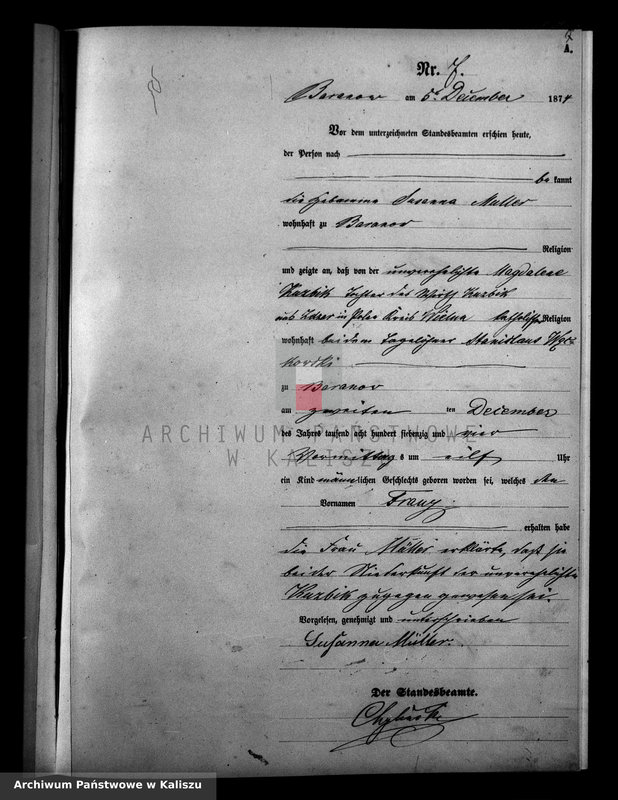 A.
Nr. 7.
Baranow am 5t December 1874
Vor dem unterzeichneten Standesbeamten erschien heute,
der Person nach
bekannt
die Hebamme Susanna Müller
wohnhaft zu Baranow
Religion
und zeigte an, daß von der unverehelichte Magdalene
Kuzbik Tochter des Wirth Kuzbik
aus in Polen Kreis Wielun katholischer Religion
wohnhaft bei dem Tagelöhner Stanislaus
zu Baranow
am zweiten ten December
des Jahres tausend acht hundert siebenzig und vier
Vormittags um eilf Uhr
ein Kind männlichen Geschlechts geboren worden sei, welches den
Vornamen Franz
erhalten habe
die Frau Müller erklärte, daß sie
bei der Niederkunft der unverehelichte
Kuzbik zugegen gewesen sei.
Vorgelesen, genehmigt und unterschrieben
Susanna Müller.
Der Standesbeamte.
ARCHIWUM PAŃSTWOWE
W KALISZU
Archiwum Państwowe w Kaliszu